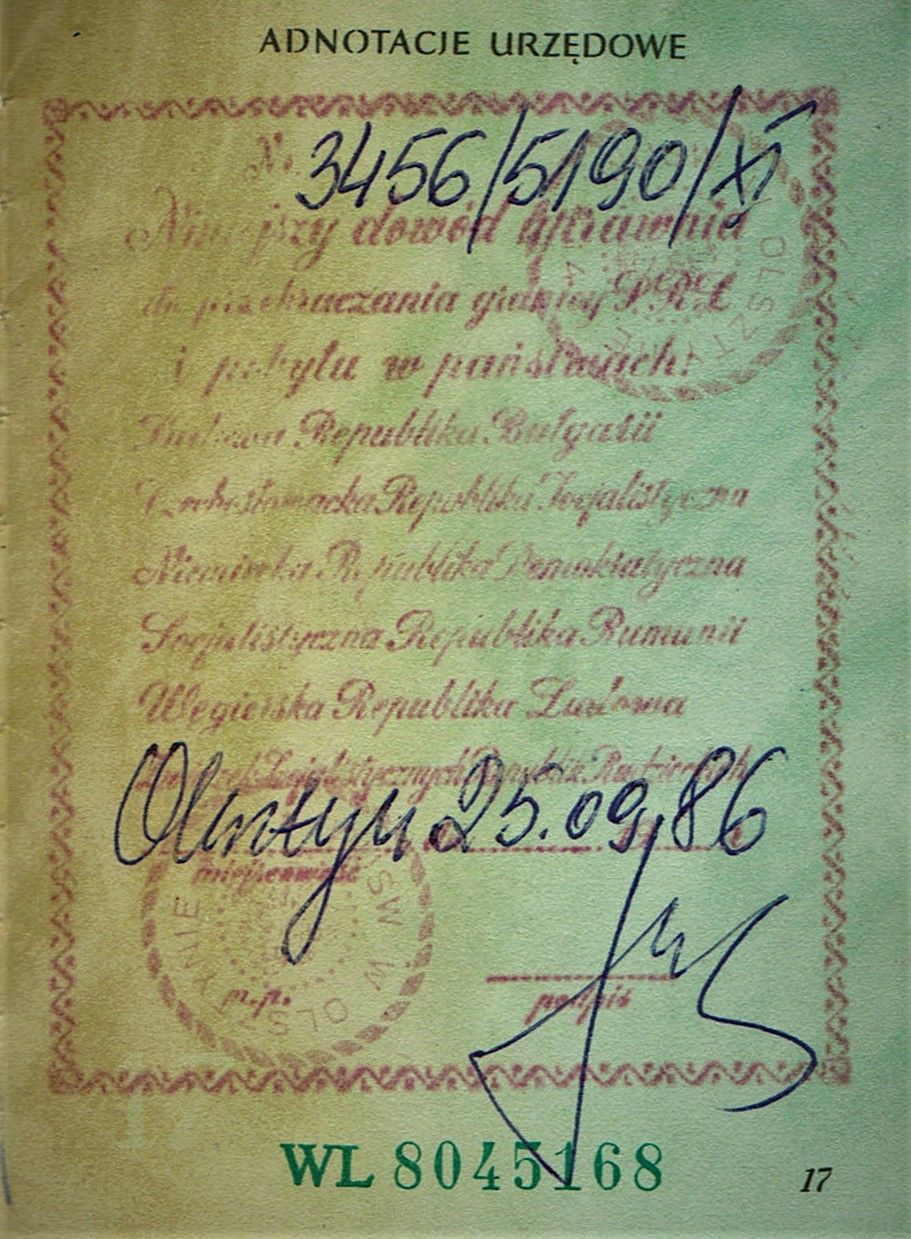 ADNOTACJE URZĘDOWE
Nr 3456/5190/XI
Niniejszy dowód uprawnia
do przekraczania granicy P.R.L
i pobytu w państwach:
Ludowa Republika Bułgarii
Czechosłowacka Republika Socjalistyczna
Niemiecka Republika Demokratyczna
Socjalistyczna Republika Rumunii
Węgierska Republika Ludowa
Związek Socjalistycznych Republik Radzieckich
Olsztyn 25.09.86
miejscowość
m.p.
podpis
OLSZTYNIE
SW W OLSZTYNIE
WL 8045168
17